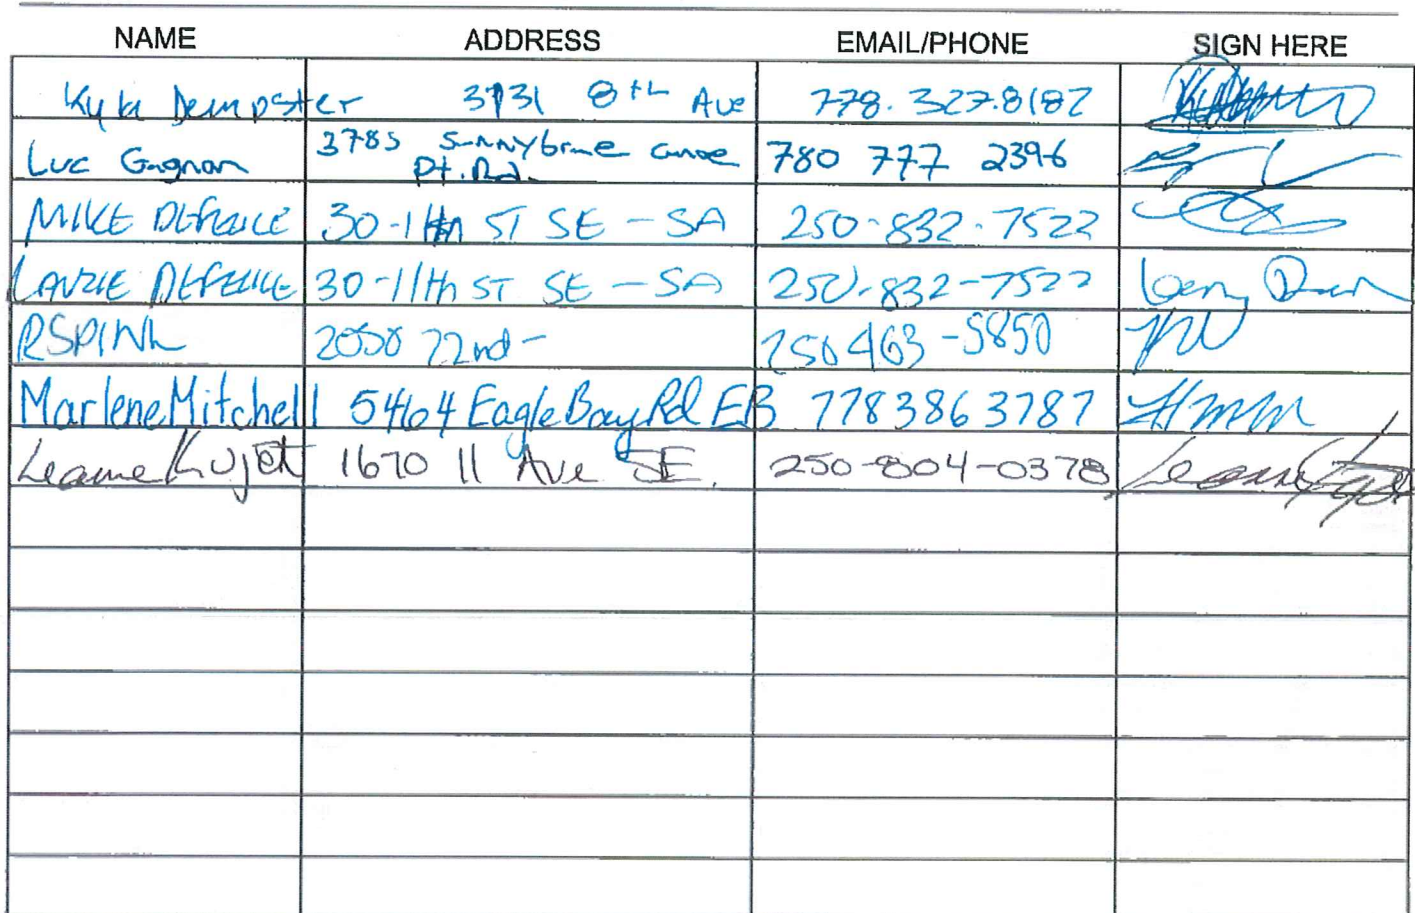 NAME ADDRESS EMAIL/PHONE SIGN HERE
Kyla Dempster 3731 8th Ave 778.327.8182
Luc Gagnon 3785 Sunnybrae Canoe Pt. Rd. 780 777 2396
MIKE DEFEUCE 30-11th ST SE - SA 250-832-7522
LAURIE DEFEUCE 30-11th ST SE - SA 250-832-7522
RSPINK 22nd - 250 463-5850
Marlene Mitchell 5464 Eagle Bay Rd EB 778 386 3787
Leanne Kujat 1670 11 Ave SE. 250-804-0378 Leanne